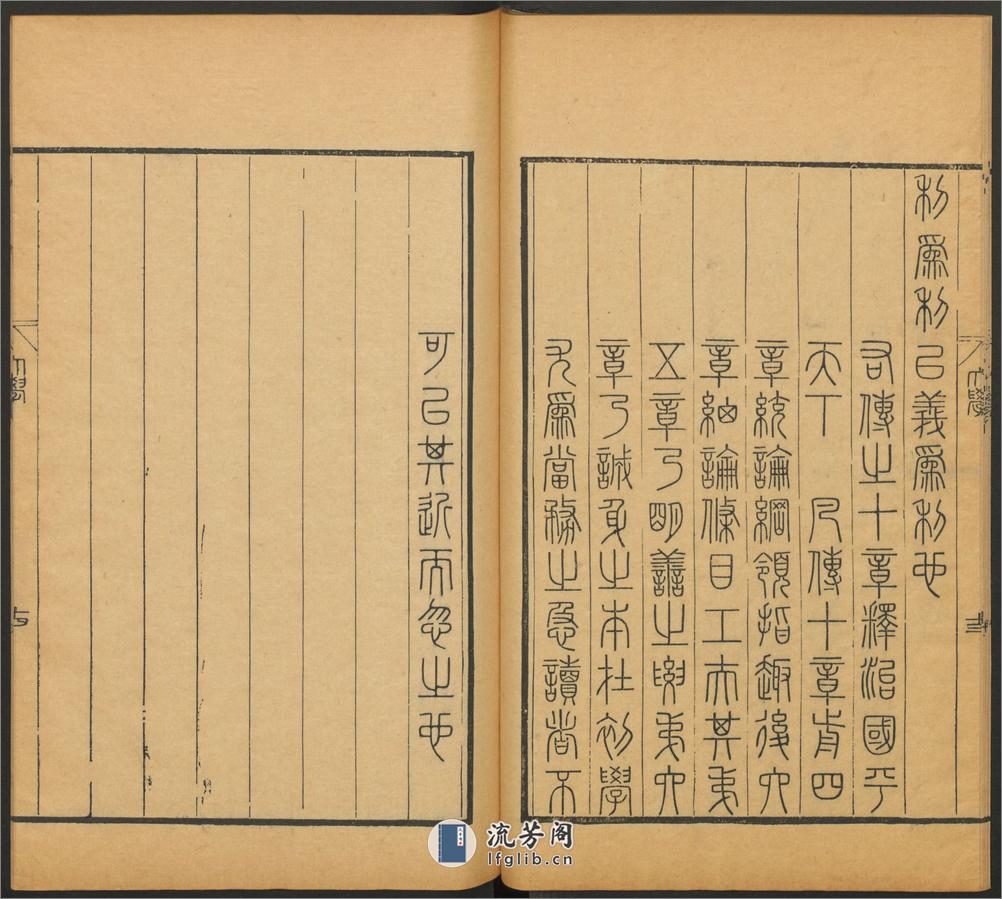 利爲利以義爲利也
右傳之十章釋治國平
天下　凡傳十章前四
章統論綱領指趣後六
章細論條目工夫其第
五章乃明善之要第六
章乃誠身之本在初學
尤爲當務之急讀者不
可以其近而忽之也
大學
大學
流芳阁
lfglib.cn